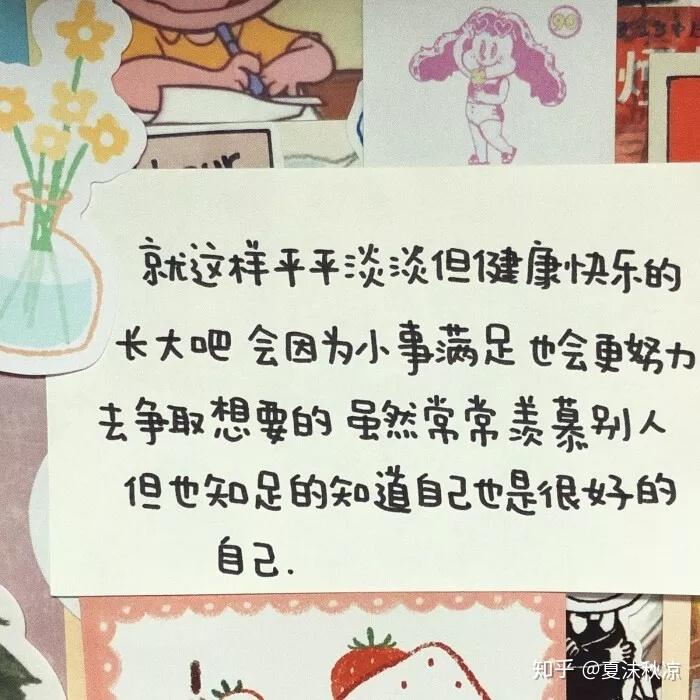 99
就这样平平淡淡但健康快乐的
长大吧 会因为小事满足 也会更努力
去争取想要的 虽然常常羡慕别人
但也知足的知道自己也是很好的
自己.
知乎 @夏沫秋凉